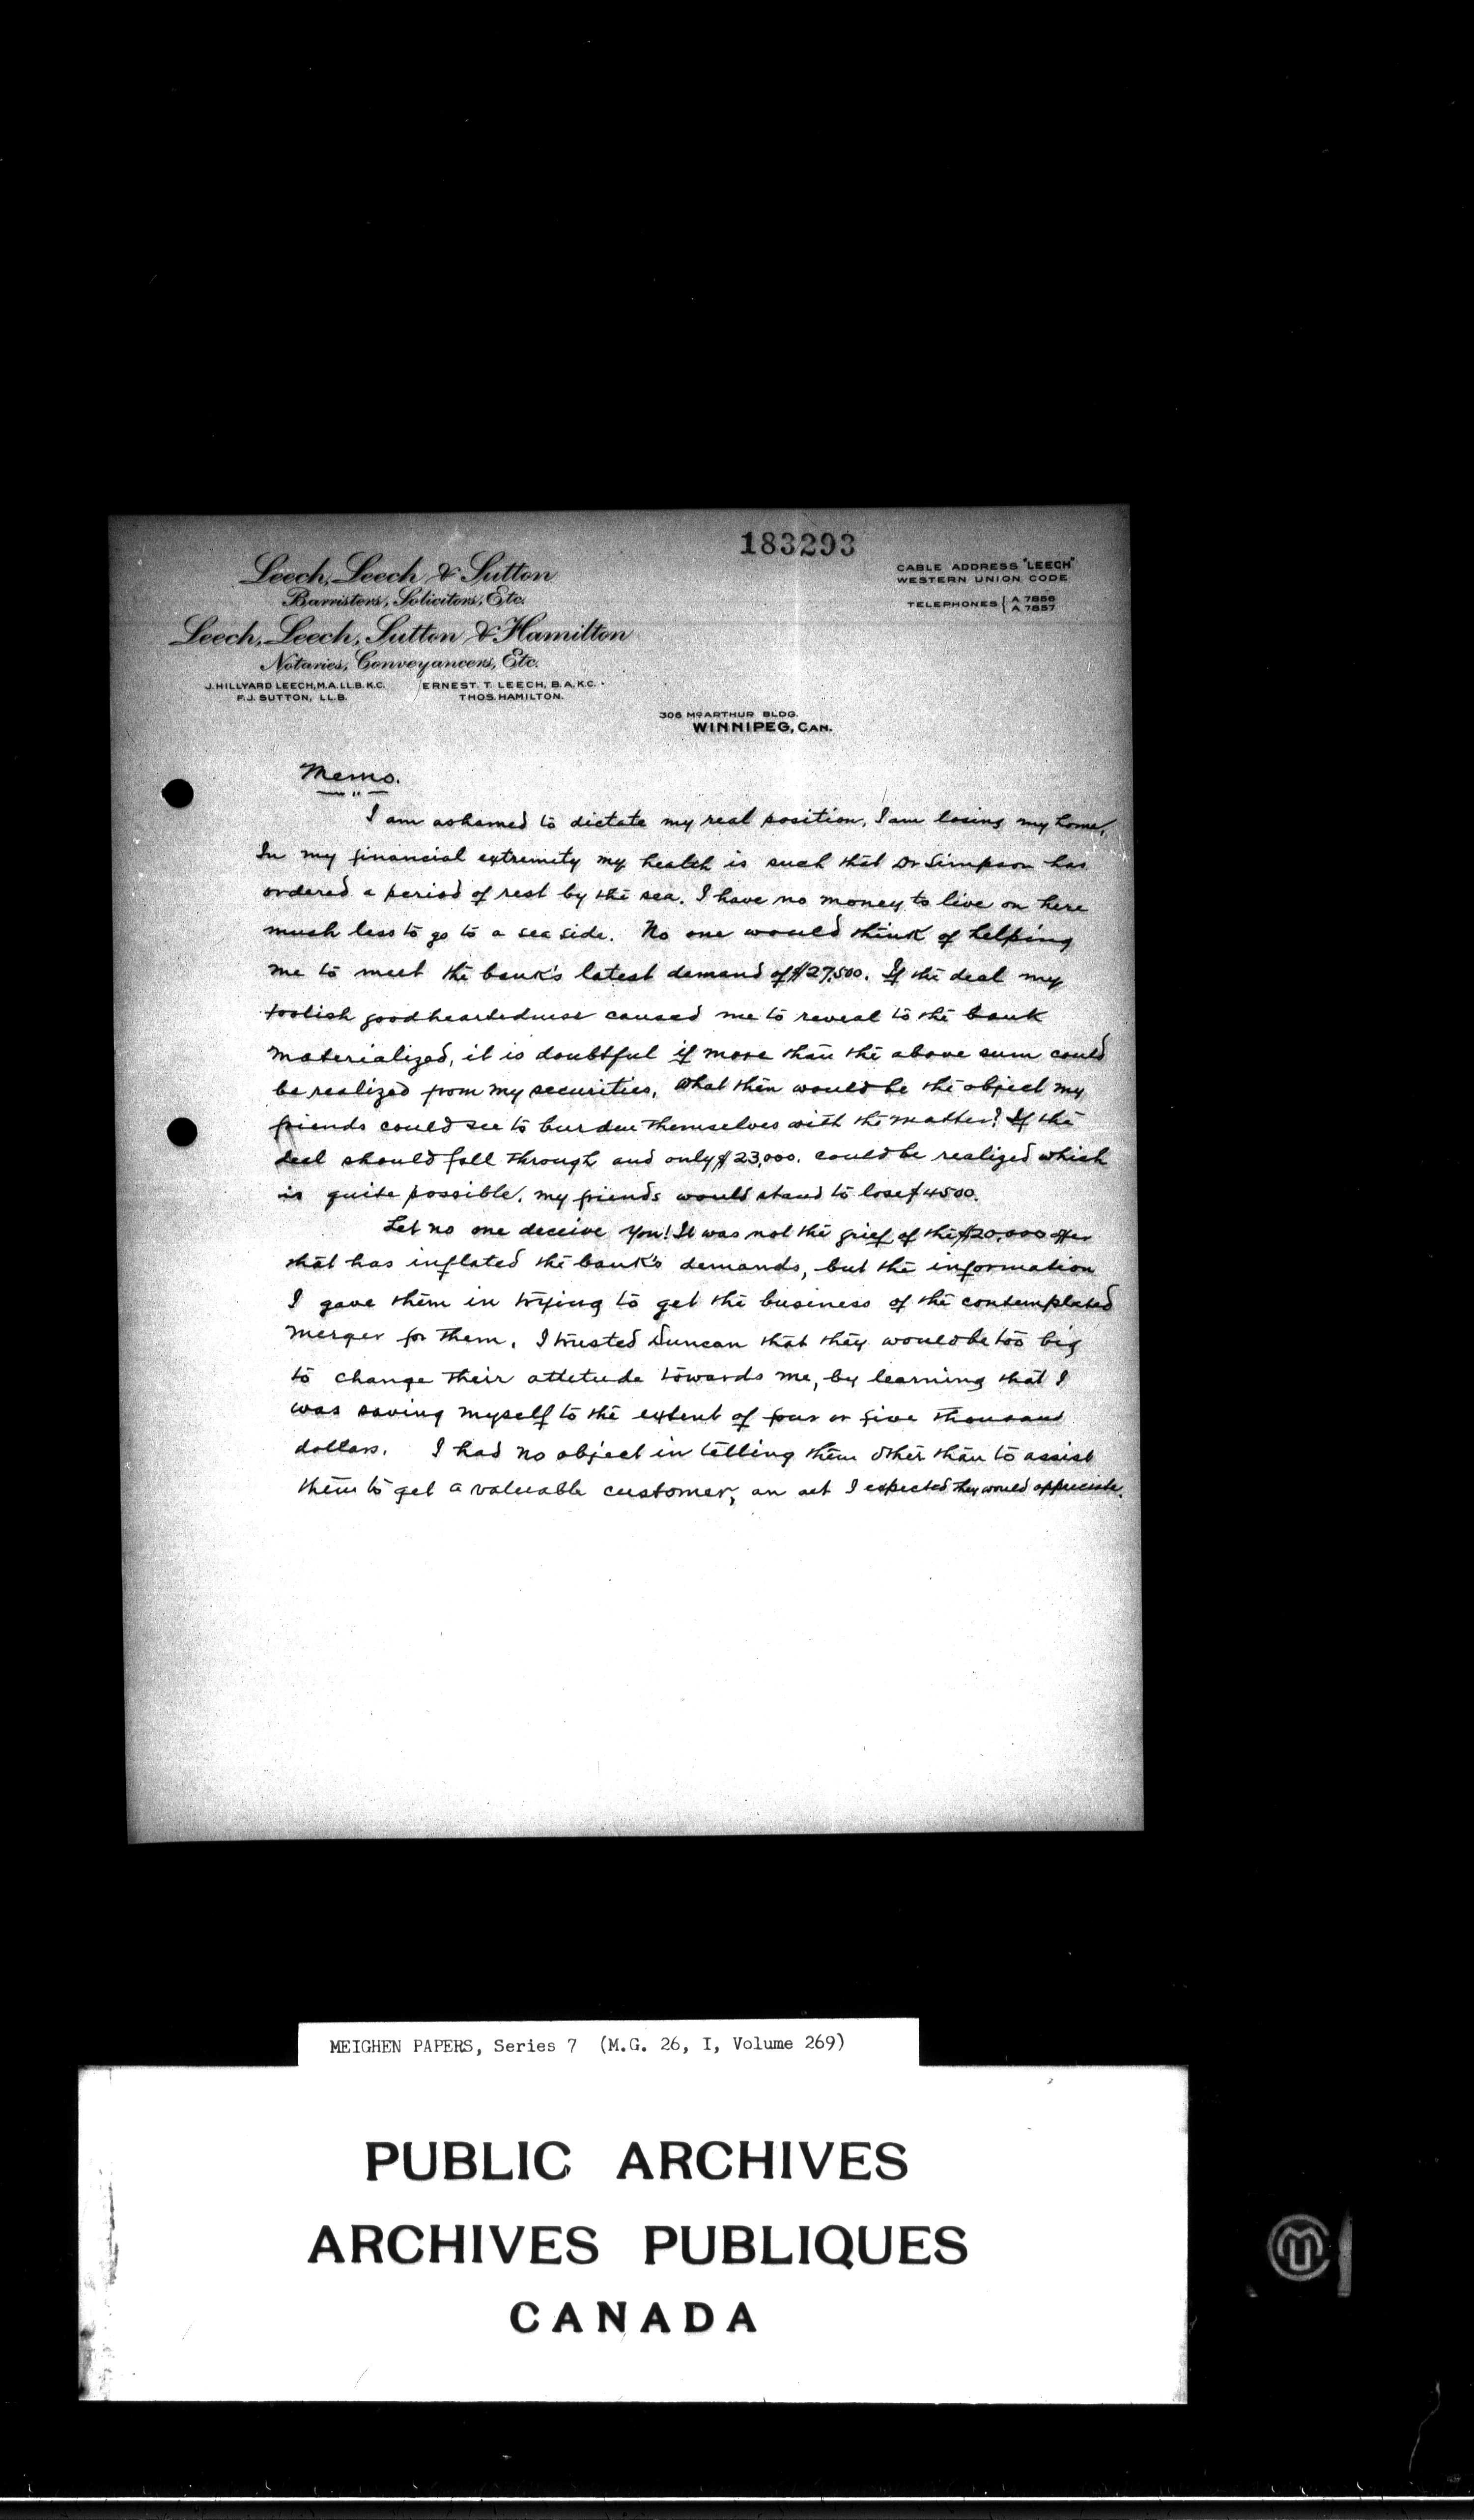 183293
Leech, Leech & Sutton
Barristers, Solicitors, Etc.
Leech, Leech, Sutton & Hamilton
Notaries, Conveyancers, Etc.
J. HILLYARD LEECH, M.A. LL.B. K.C. ERNEST. T. LEECH, B.A, K.C.
F. J. SUTTON, LL.B. THOS. HAMILTON.
CABLE ADDRESS "LEECH"
WESTERN UNION CODE
TELEPHONES { A 7856
A 7857
306 McARTHUR BLDG.
WINNIPEG, CAN.
Memo.
I am ashamed to dictate my real position. I am losing my home.
In my financial extremity my health is such that Dr Simpson has
ordered a period of rest by the sea. I have no money to live on here
much less to go to a sea side. No one would think of helping
me to meet the bank's latest demand of $27,500. If the deal my
foolish goodheartedness caused me to reveal to the bank
materialized, it is doubtful if more than the above sum could
be realized from my securities. What then would be the object my
friends could see to burden themselves with the matter? If the
deal should fall through and only $23,000. could be realized which
is quite possible, my friends would stand to lose $4500.
Let no one deceive you! It was not the grief of the $20,000 offer
that has inflated the bank's demands, but the information
I gave them in trying to get the business of the contemplated
merger for them. I trusted Duncan that they would be too big
to change their attetude towards me, by learning that I
was saving myself to the extent of four or five thousand
dollars. I had no object in telling them other than to assist
them to get a valuable customer, an act I expected they would appreciate.
MEIGHEN PAPERS, Series 7 (M.G. 26, I, Volume 269)
PUBLIC ARCHIVES
ARCHIVES PUBLIQUES
CANADA